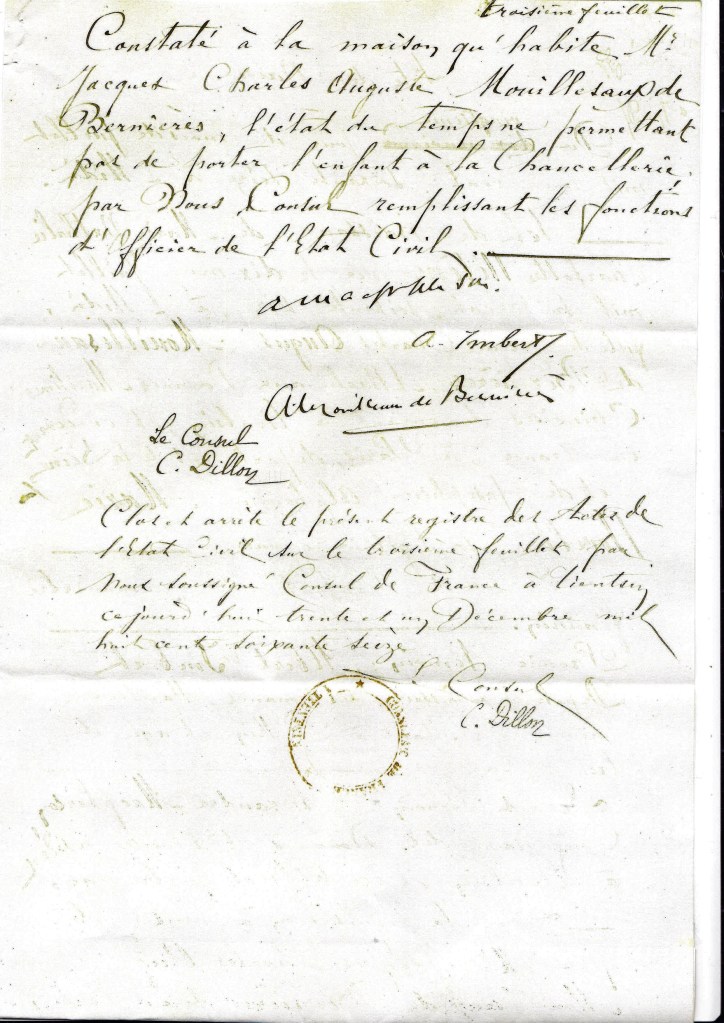 troisième feuillet
Constaté à la maison qu'habite Mr
Jacques Charles Auguste Mouillesaux de
Bernières, l'état du temps ne permettant
pas de porter l'enfant à la Chancellerie,
par Nous Consul remplissant les fonctions
d'Officier de l'Etat Civil.
A. Imbert
de Bernières
Le Consul
C. Dillon
Clos et arrêté le présent registre des Actes de
l'Etat Civil sur le troisième feuillet par
Nous soussigné Consul de France à Tientsin
ce jourd'hui trente et un Décembre mil
huit cent soixante seize
Le Consul
C. Dillon